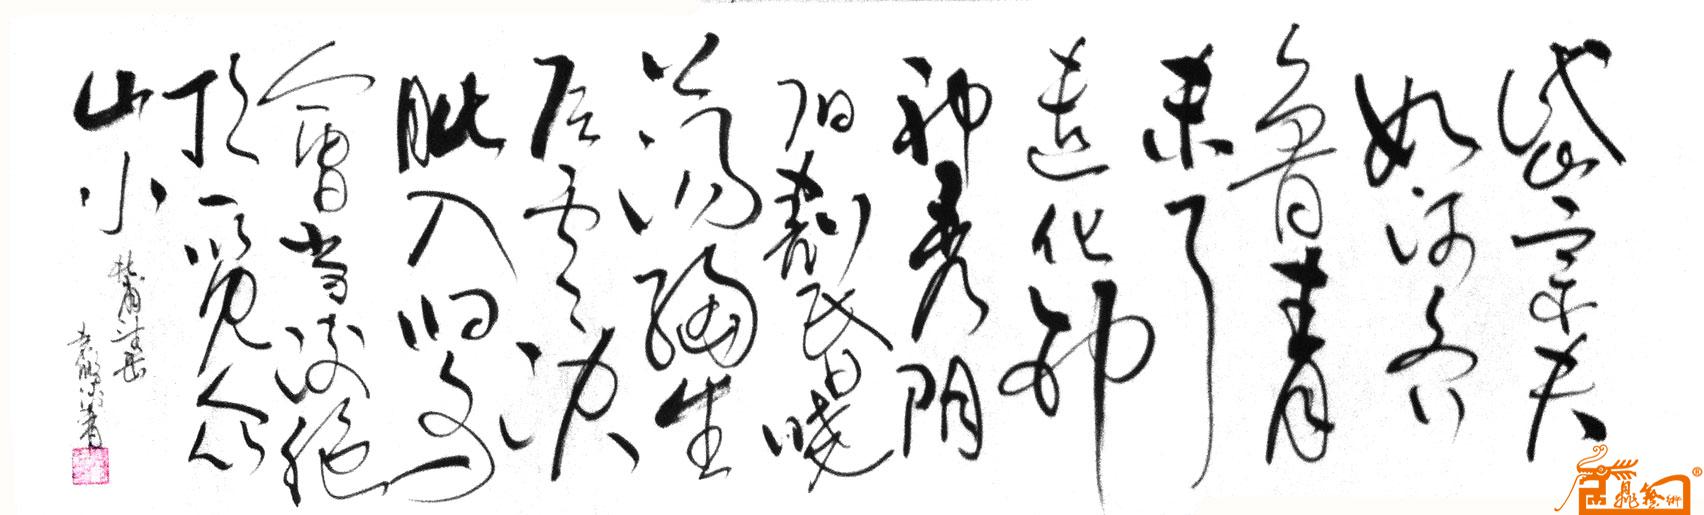 岱宗夫
如何齐
鲁青
未了
造化钟
神秀阴
阳割昏晓
荡胸生
层云决
眦入归鸟
會当凌绝
顶一览众
山小
杜甫望岳